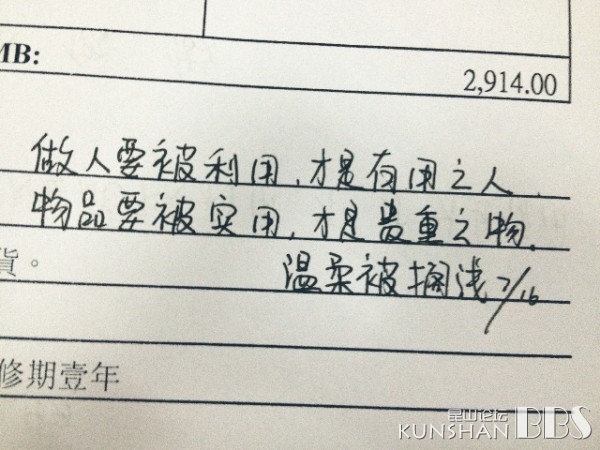 MB:
2,914.00
做人要被利用,才是有用之人.
物品要被实用,才是贵重之物.
貨。
温柔被搁浅 7/16
修期壹年
昆山论坛
KUNSHAN BBS